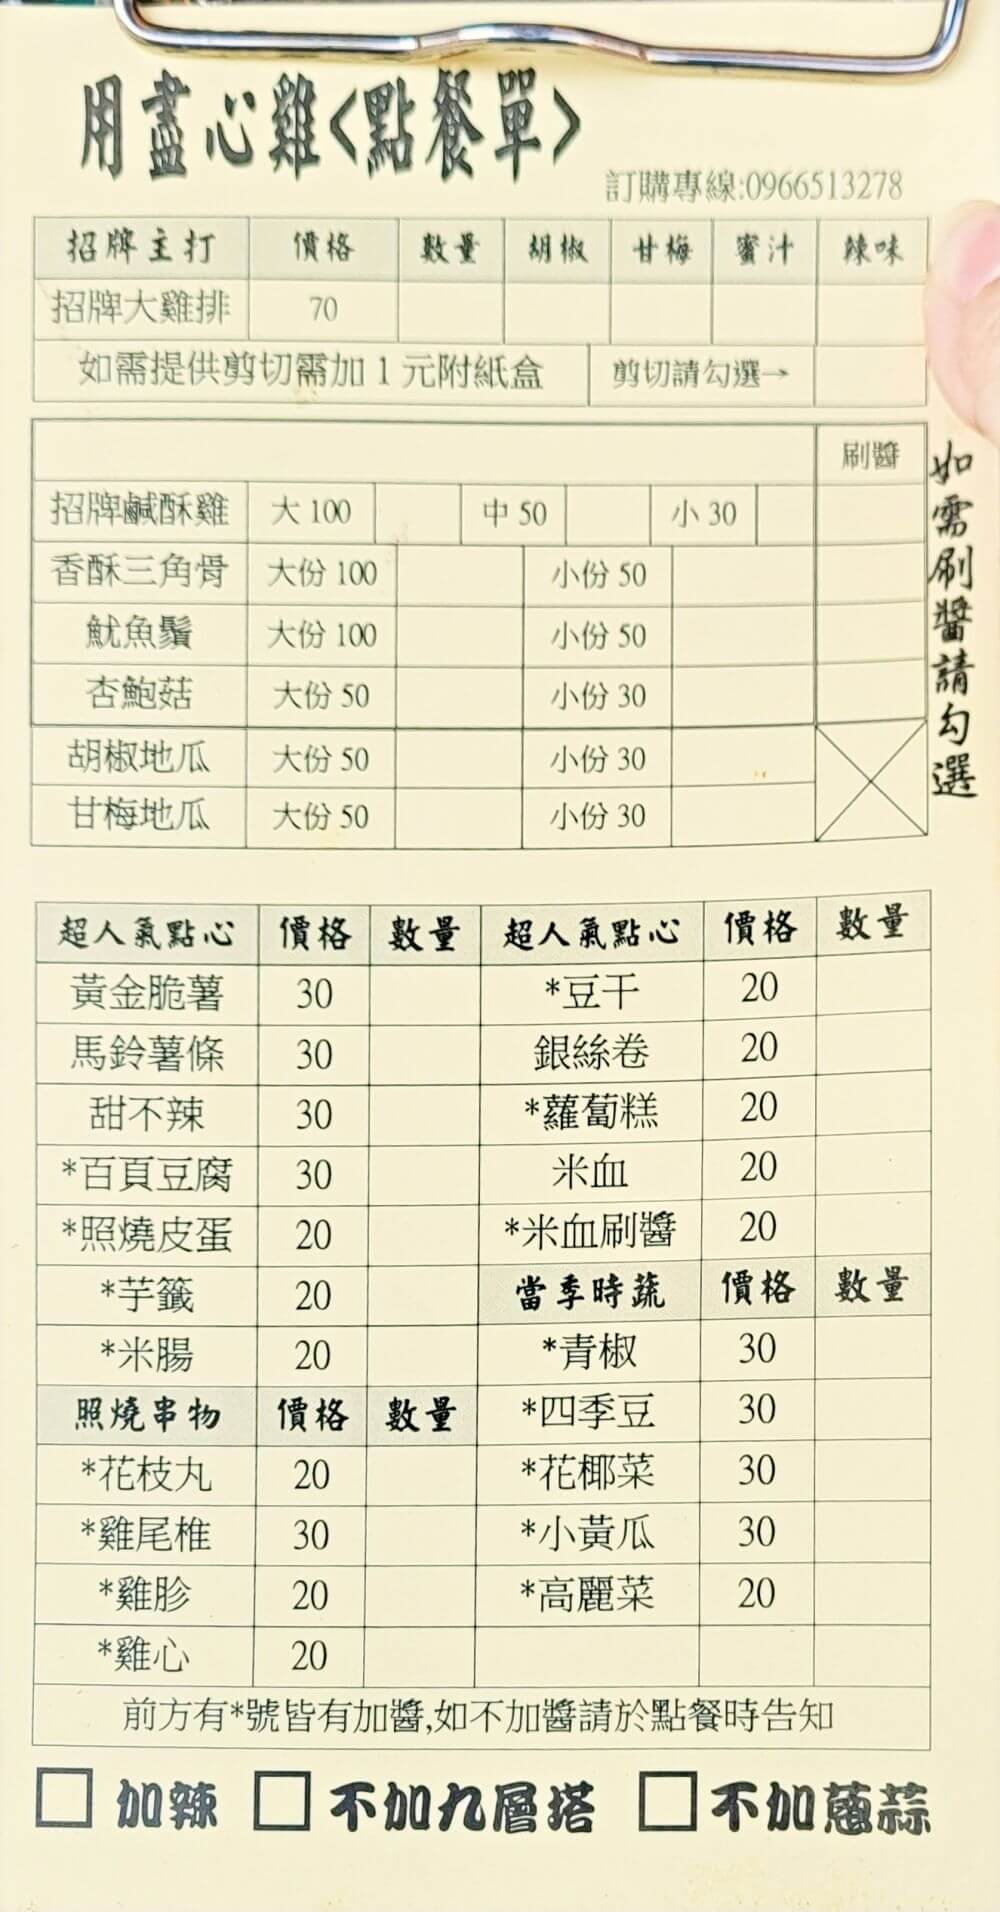 用盡心雞<點餐單>
訂購專線:0966513278
招牌主打 價格 數量 胡椒 甘梅 蜜汁 辣味
招牌大雞排 70
如需提供剪切需加 1 元附紙盒 剪切請勾選→
刷醬
招牌鹹酥雞 大 100 中 50 小 30
香酥三角骨 大份 100 小份 50
魷魚鬚 大份 100 小份 50
杏鮑菇 大份 50 小份 30
胡椒地瓜 大份 50 小份 30
甘梅地瓜 大份 50 小份 30
如需刷醬請勾選
超人氣點心 價格 數量 超人氣點心 價格 數量
黃金脆薯 30 *豆干 20
馬鈴薯條 30 銀絲卷 20
甜不辣 30 *蘿蔔糕 20
*百頁豆腐 30 米血 20
*照燒皮蛋 20 *米血刷醬 20
*芋籤 20 當季時蔬 價格 數量
*米腸 20 *青椒 30
照燒串物 價格 數量 *四季豆 30
*花枝丸 20 *花椰菜 30
*雞尾椎 30 *小黃瓜 30
*雞胗 20 *高麗菜 20
*雞心 20
前方有*號皆有加醬,如不加醬請於點餐時告知
□ 加辣 □ 不加九層塔 □ 不加蔥蒜